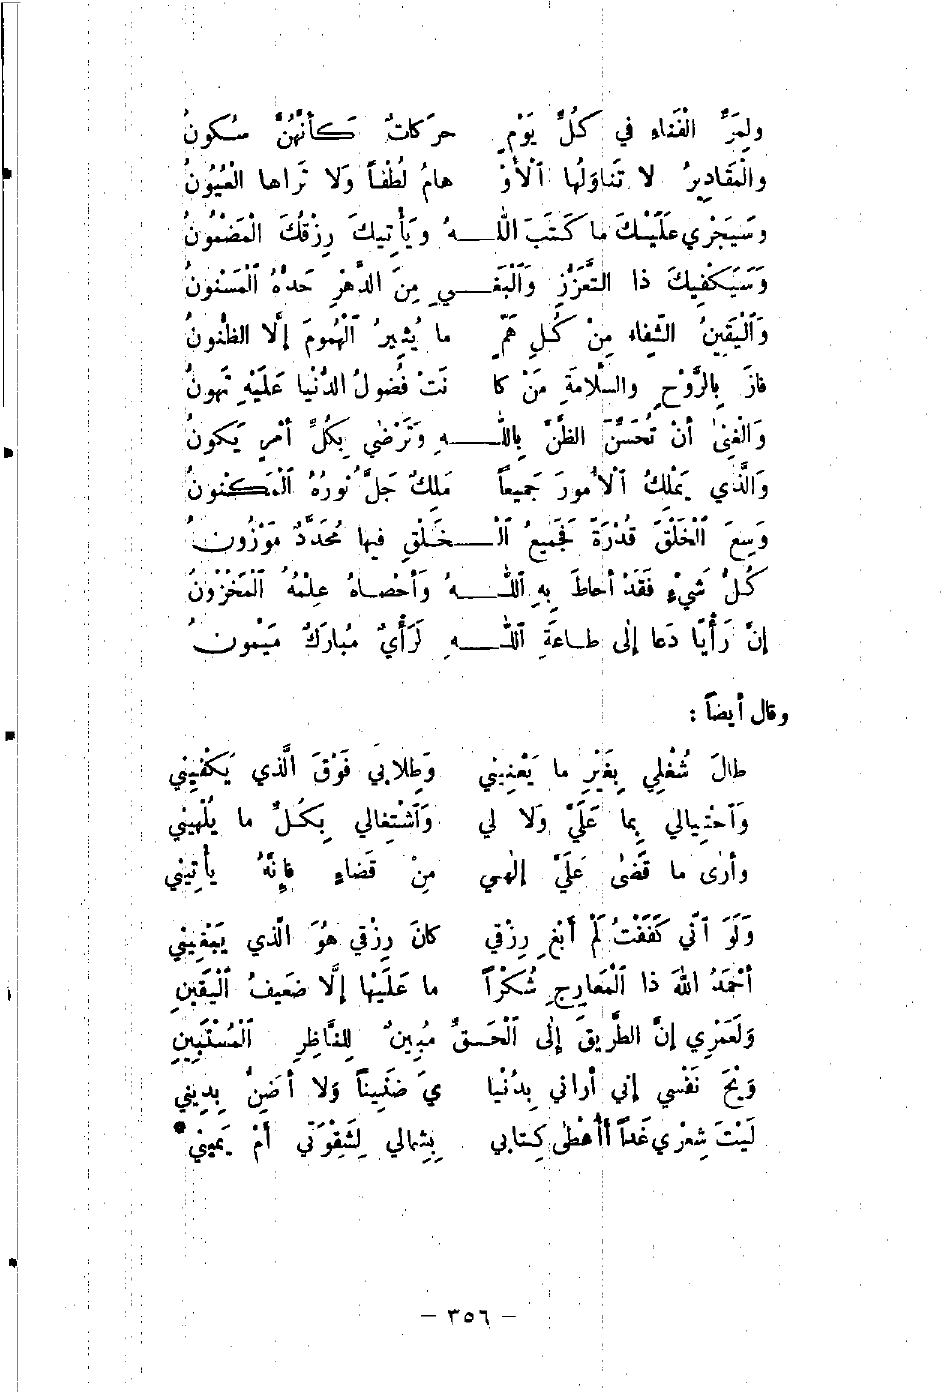 ولِمَرِّ الْفَناءِ في كُلِّ يَوْمٍ حرَكاتٌ كَأنَّهُنَّ سُكونُ
والْمَقَاديرُ لا تَناوَلُها الْأَوْ هامُ لُطْفاً وَلا تَراها الْعُيُونُ
وَسَيَجْري عَلَيْكَ ما كَتَبَ اللـــهُ ويَأْتيكَ رِزْقُكَ الْمَضْمُونُ
وَسَيَكْفيكَ ذا التَّعَزُّزِ وَالْبَغْـــيِ مِنَ الدَّهْرِ حَدُّهُ الْمَسْنونُ
وَالْيَقينُ الشِّفاء مِنْ كُلِ هَمٍّ ما يُثيرُ الْهُمومَ إلَّا الظُنونُ
فازَ بِالرَّوْحِ والسلامَةِ مَنْ كا نَتْ فُضولُ الدُّنْيا عَلَيْهِ تَهونُ
وَالْغِنىٰ أنْ تُحَسِّنَ الظَّنَّ بِاللـــهِ وَتَرْضٰى بِكُلِّ أمْرٍ يَكونُ
وَالَّذي يَمْلِكُ الْأُمورَ جَميعاً مَلِكٌ جَلَّ نُورُهُ الْمَكْنونُ
وَسِعَ الْخَلْقَ قُدْرَةً فَجَميعُ الْـــخَلْقِ فيها مُحَدَّدٌ مَوْزُونُ
كُلُّ شَيْءٍ فَقَدْ أحاطَ بِهِ اللـــهُ وَأحْصاهُ عِلْمُهُ الْمَخْزونُ
إنَّ رَأْيًا دَعا إلٰى طـاعَةِ اللـــهِ لَرَأْيٌ مُبارَكٌ مَيْمونُ
وقال أيضاً :
طالَ شُغْلي بِغَيْرِ ما يَعْنيني وَطِلابي فَوْقَ الَّذي يَكْفيني
وَاحْتِيالي بِما عَلَيَّ وَلا لي وَاشْتِغالي بِكُلِّ ما يُلْهيني
وأرٰى ما قَضٰى عَلَيَّ إلٰهي مِنْ قَضاءٍ فإنَّهُ يأْتيني
وَلَوَ انّي كَفَفْتُ لَمْ أبْغِ رِزْقي كانَ رِزْقي هُوَ الَّذي يَبْغيني
أحْمَدُ اللهَ ذا الْمَعارِجِ شُكْراً ما عَلَيْها إلَّا ضَعيفُ الْيَقينِ
وَلَعَمْري إنَّ الطَّريقَ إلٰى الْحَقِّ مُبينٌ لِلنَّاظِرِ الْمُسْتَبينِ
وَيْحَ نَفْسي إني أراني بِدُنْيا يَ ضَنيناً وَلا أضِنُّ بِديني
لَيْتَ شِعْري غَداً أأُعْطٰى كِتابي بِشِمالي لِشَقْوَتي أمْ يَميني*
— ٣٥٦ —